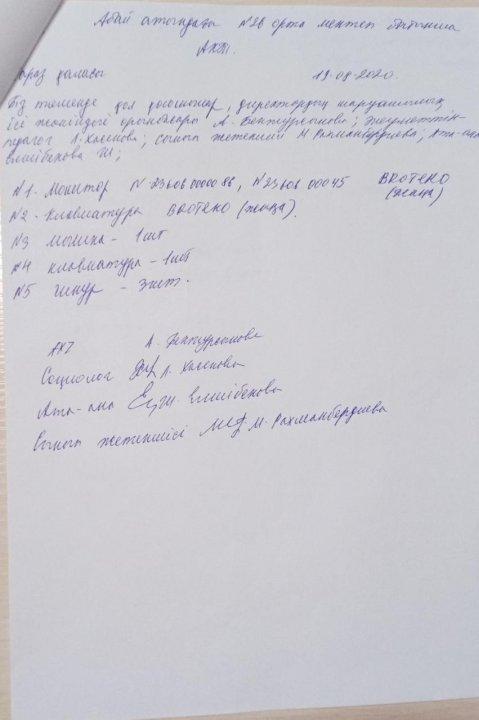 Абай атындағы №26 орта мектеп бойынша
Акт.
араз қаласы 19.08.2020.
Біз төменде қол қоюшылар, директордың шаруашылық
ісі жөніндегі орынбасары А. Бектурсынова; әлеуметтік
педагог Л. Хасенова; сынып жетекшісі М Рахманбердиева; Ата-ана
Елшібекова Ж;
№1. Монитор N 23606 0000 86, N23606 00045 BROTEKO
(жаңа)
№2 - Клавиатура BROTEKO (жаңа).
№3 мышка - 1шт
№4 клавиатура - 1шт
№5 шнур - 3шт.
АХЧ А. Бектурсынова
Социолог Л. Хасенова
Ата-ана Ж. Елшібекова
Сынып жетекшісі М. Рахманбердиева